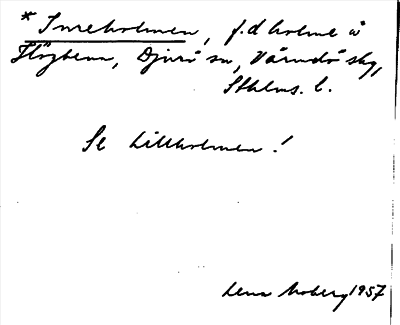 * Inreholmen, f.d holme å
Flögbenn, Djurö sn, Värmdö skg,
Sthlms. l.
Se Lillholmen!
Lena Moberg 1957